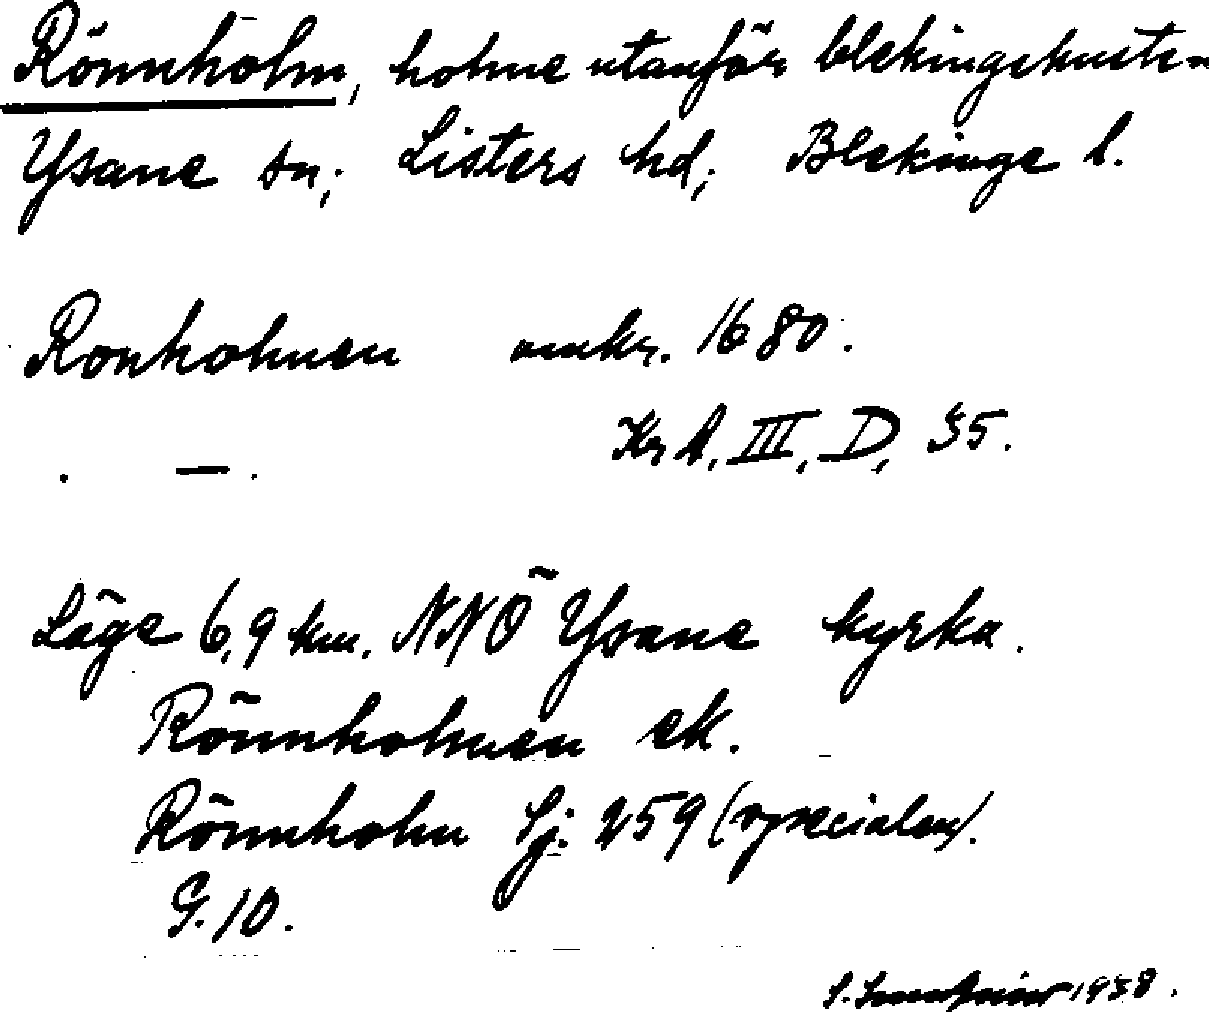 Rönnholm, holme utanför blekingekusten
Ysane sn; Listers hd; Blekinge l.
Ronholmen omkr. 1680.
. — . KrA, III, D, 35.
Läge 6,9 km. NNÖ Ysane kyrka.
Rönnholmen ek.
Rönnholm Sj. 259 (specialen).
G. 10.
1938.